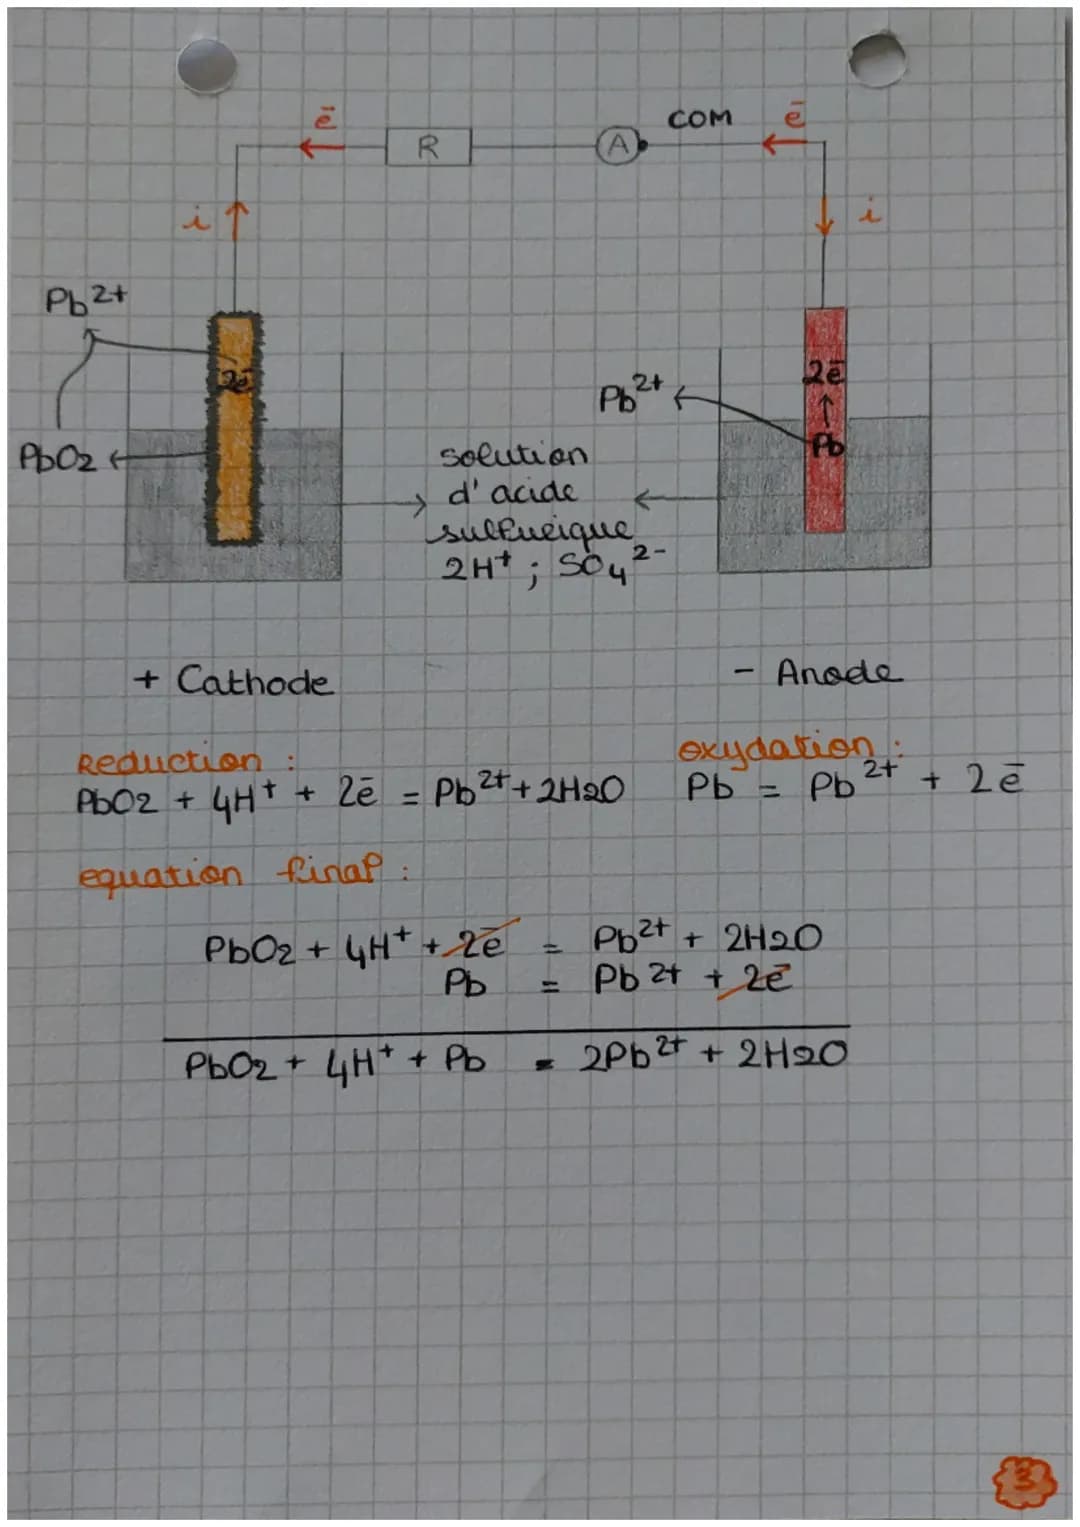 ē
R
A
COM
ē
i
i
Pb²⁺
2ē
PbO₂
Pb²⁺
2ē
Pb
solution
d'acide
sulfurique
2H⁺ ; SO₄²⁻
+ Cathode
- Anode
Reduction :
PbO₂ + 4H⁺ + 2ē = Pb²⁺ + 2H₂O
oxydation :
Pb = Pb²⁺ + 2ē
equation final :
PbO₂ + 4H⁺ + 2ē = Pb²⁺ + 2H₂O
Pb = Pb²⁺ + 2ē
PbO₂ + 4H⁺ + Pb = 2Pb²⁺ + 2H₂O
3